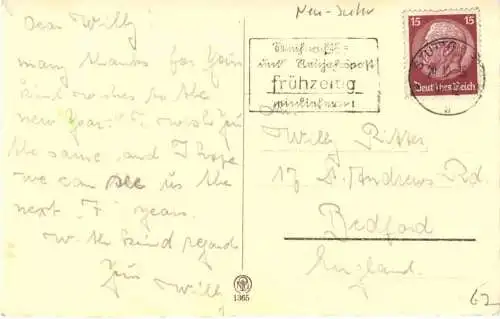 Neu-
Dear Willy!
many thanks for your
kind wishes to the
new Year. I wish you
the same, and I hope
we can see us the
next years.
With kind regard
Your Willy
Weihnachts-
und Neujahrspost
frühzeitig
einliefern!
15 15
Deutsches Reich
Willy Ritter
17 St. Andrews Rd.
Bedford
England.
1365
62